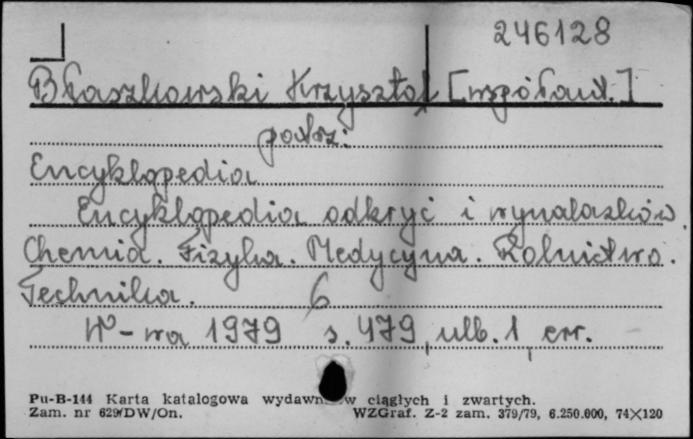 246128
Błaszkowski Krzysztof [współaut.]
patrz:
Encyklopedia
Encyklopedia odkryć i wynalazków.
Chemia. Fizyka. Medycyna. Rolnictwo.
Technika. 6
W-wa 1979 s. 479, ulb. 1, err.
Pu-B-144 Karta katalogowa wydawn w ciągłych i zwartych.
Zam. nr 629/DW/On. WZGraf. Z-2 zam. 379/79, 6.250.000, 74×120